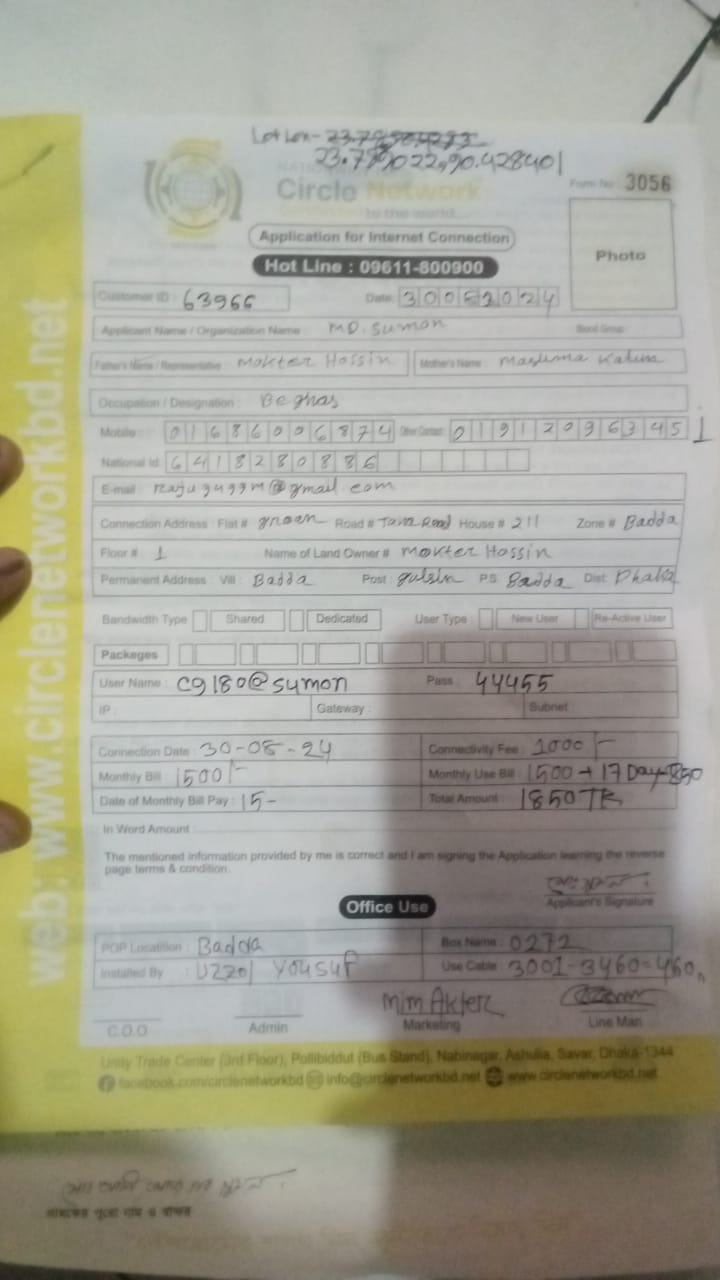 Lat Lon-
23.789022,90.428401
Circle Network
to the world...
Form No : 3056
Application for Internet Connection
Photo
Hot Line : 09611-800900
Customer ID : 63966 Date:
Applicant Name / Organization Name : MD. Sumon Blood Group:
Father's Name / Representative : Mokter Hossin Mother's Name :
Occupation / Designation :
Mobile : 01686006874 Other Contact: 01912096345
National Id: 6418280886
E-mail : @gmail.com
Connection Address : Flat # Road # Tara Road House # 211 Zone # Badda
Floor # 1 Name of Land Owner # Mokter Hossin
Permanent Address : Vill : Badda Post : P.S: Badda Dist: Dhaka
Bandwidth Type Shared Dedicated User Type : New User Re-Active User
Packages
User Name : cg180@sumon Pass : 44455
IP : Gateway : Subnet
Connection Date : 30-05-24 Connectivity Fee : 1000/-
Monthly Bill : 1500/- Monthly Use Bill : 1500 → 17 Day-850
Date of Monthly Bill Pay : 15- Total Amount : 1850 TK
In Word Amount :
The mentioned information provided by me is correct and I am signing the Application learning the reverse
page terms & condition.
Applicant's Signature
Office Use
POP Location : Badda Box Name : 0272
Installed By : Uzzol Yousuf Use Cable : 3001-3460=460
Mim Akter
C.O.O Admin Marketing Line Man
Unity Trade Center (3rd Floor), Pollibiddut (Bus Stand), Nabinagar, Ashulia, Savar, Dhaka-1344
facebook.com/circlenetworkbd info@circlenetworkbd.net www.circlenetworkbd.net
web: www.circlenetworkbd.net
গ্রাহকের পুরো নাম ও স্বাক্ষর